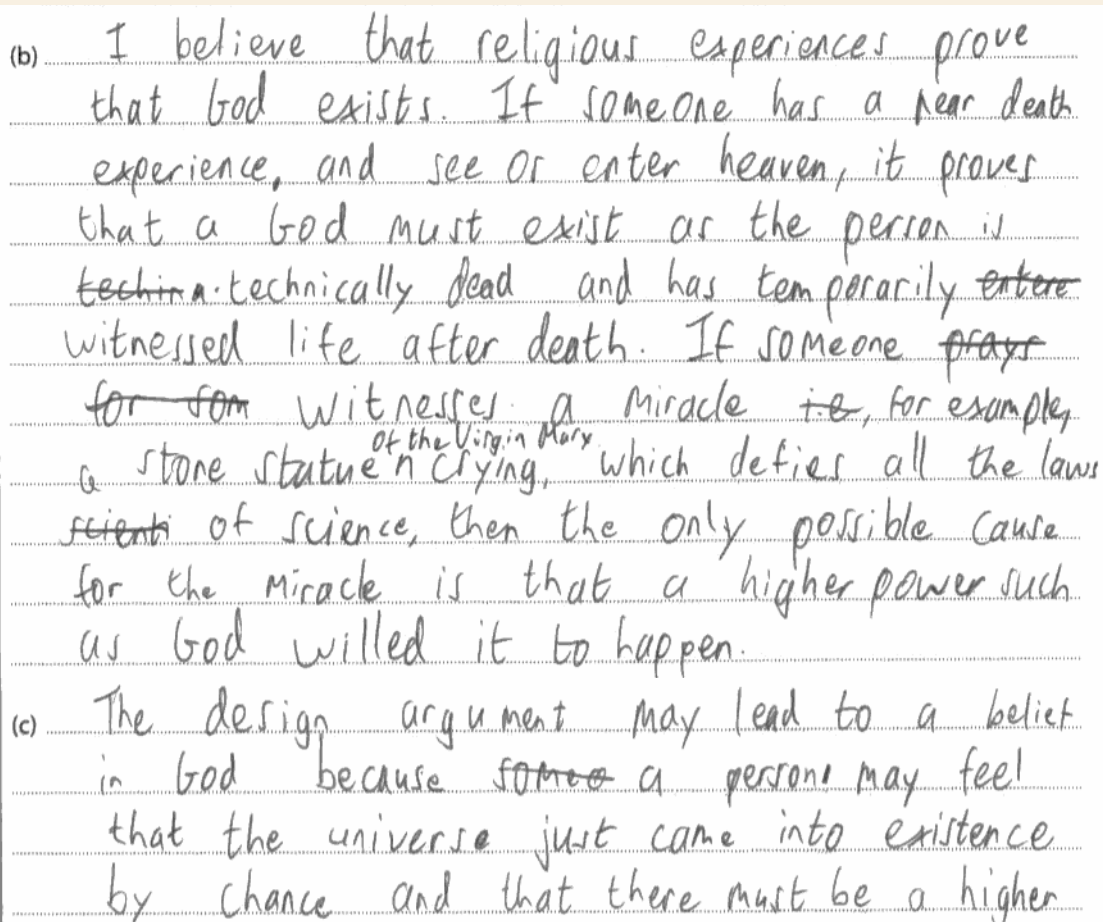 (b) I believe that religious experiences prove
that God exists. If someone has a near death
experience, and see or enter heaven, it proves
that a God must exist as the person is
techina. technically dead and has temperarily entere
witnessed life after death. If someone prays
for som witnesses a miracle i.e, for example,
of the Virgin Mary
a stone statue n crying, which defies all the laws
scienti of science, then the only possible cause
for the miracle is that a higher power such
as God willed it to happen.
(c) The design argument may lead to a belief
in God because someo a person may feel
that the universe just came into existence
by chance and that there must be a higher